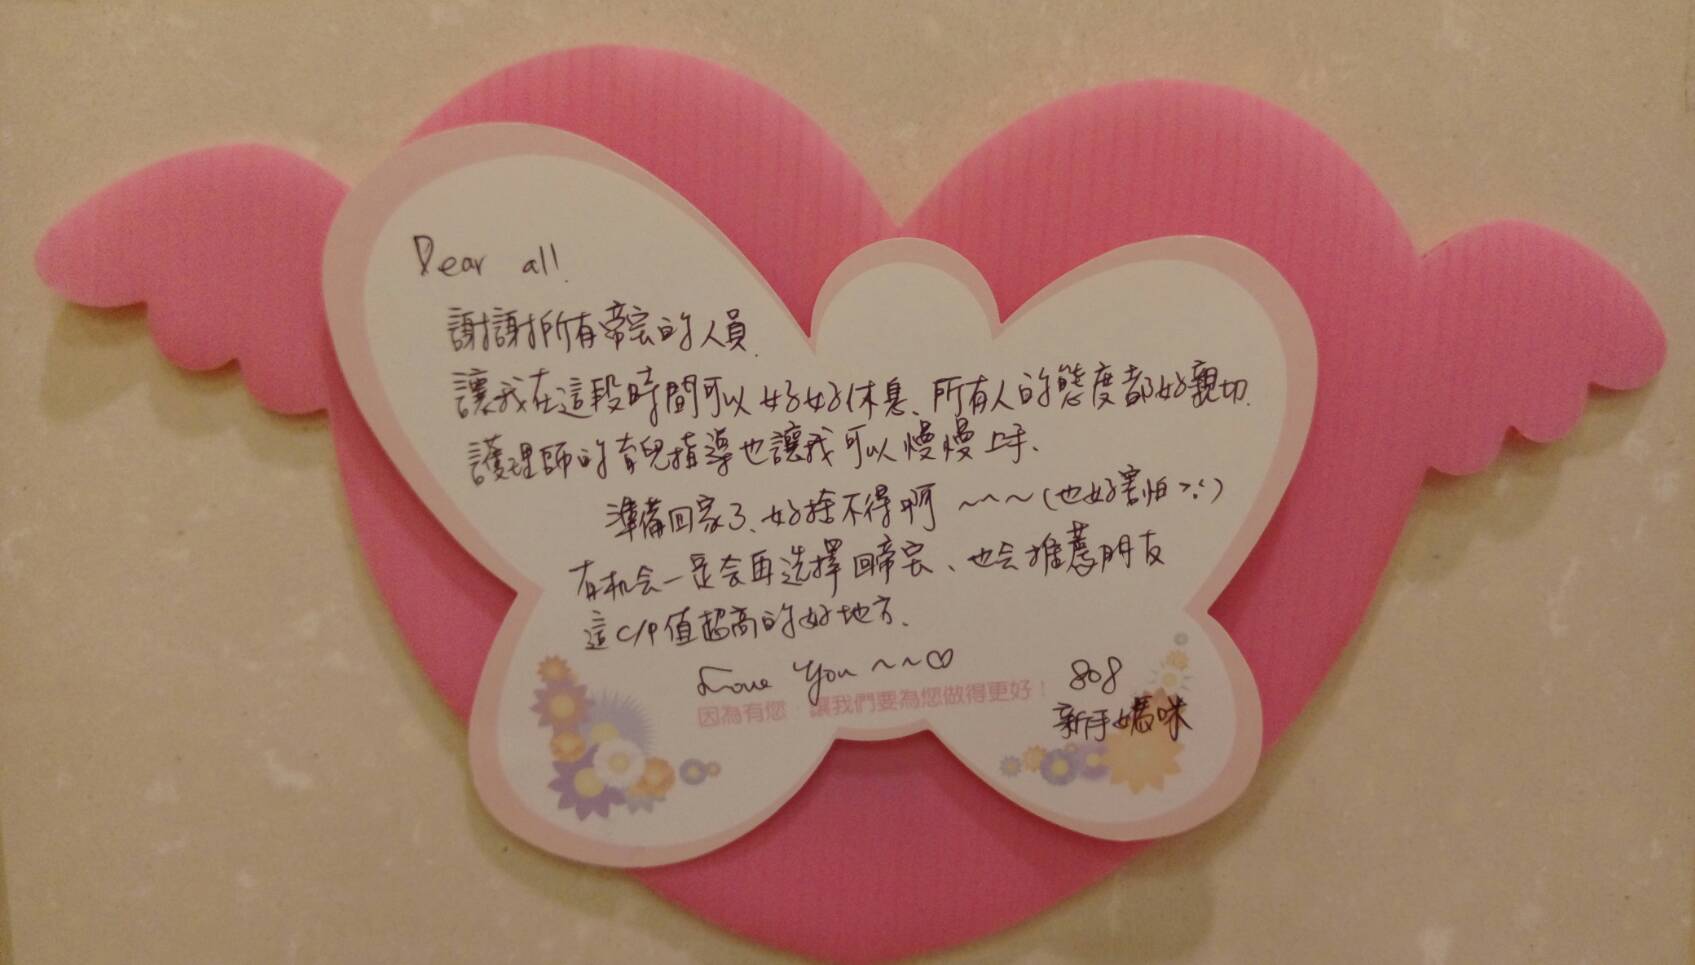 Dear all.
謝謝所有帝宝的人員.
讓我在這段時間可以好好休息、所有人的態度都好親切.
護理師的育兒指導也讓我可以慢慢上手、
準備回家了、好捨不得啊 ~~~(也好害怕>:<)
有机会一定会再选擇回帝宝、也会推薦朋友
這C/P值超高的好地方.
Love You ~~♡
因為有您,讓我們要為您做得更好!
808
新手媽咪